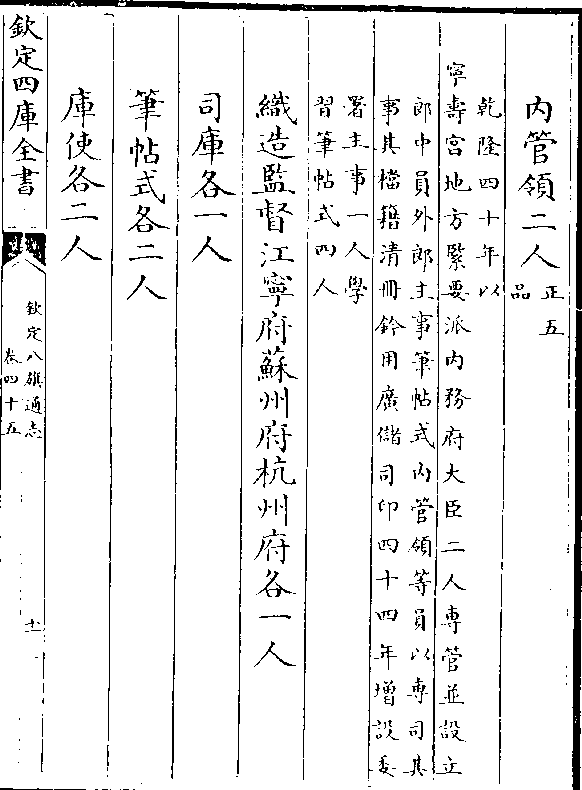 內管領二人正五品
乾隆四十年以
寧壽宮地方緊要派內務府大臣二人専管並設立
郎中員外郎主事筆帖式內管領等員以専司其
事其檔籍清冊鈐用廣儲司印四十四年增設委
署主事一人學
習筆帖式四人
織造監督江寧府蘇州府杭州府各一人
司庫各一人
筆帖式各二人
庫使各二人
欽定四庫全書
欽定八旗通志
卷四十五
十一